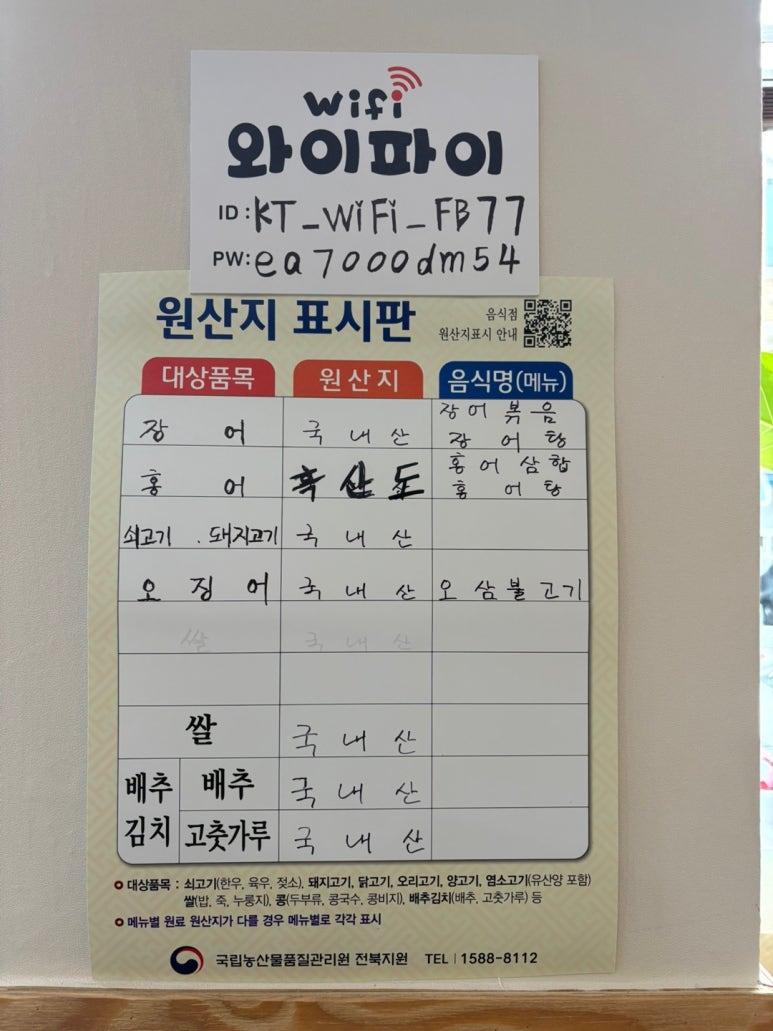 wifi
와이파이
ID: KT_WiFi_FB77
PW: ea7000dm54
원산지 표시판
음식점
원산지표시 안내
대상품목 원산지 음식명(메뉴)
장어 국내산 장어볶음
장어탕
홍어 흑산도 홍어삼합
홍어탕
쇠고기 . 돼지고기 국내산
오징어 국내산 오삼불고기
쌀 국내산
쌀 국내산
배추김치 배추 국내산
고춧가루 국내산
대상품목 : 쇠고기(한우, 육우, 젖소), 돼지고기, 닭고기, 오리고기, 양고기, 염소고기(유산양 포함)
쌀(밥, 죽, 누룽지), 콩(두부류, 콩국수, 콩비지), 배추김치(배추, 고춧가루) 등
메뉴별 원료 원산지가 다를 경우 메뉴별로 각각 표시
국립농산물품질관리원 전북지원 TEL | 1588-8112